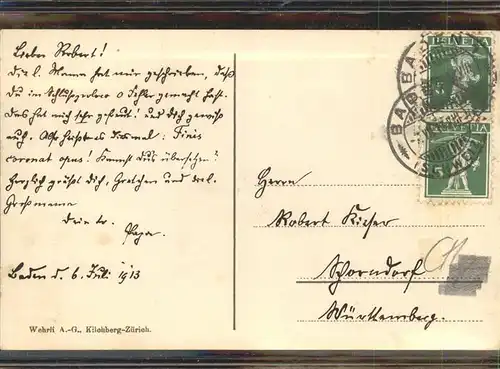 Lieber Robert!
Die l. Mama hat mir geschrieben, daß
du im Schluss 0 Fehler gemacht hast.
Das hat mich sehr gefreut! und dich gewiß
auch. Also heißt es diesmal: Finis
coronat opus! Kannst du's übersetzen?
Herzlich grüßt dich, Gretchen und
Großmama
Dein tr.
Papa.
Baden d. 6. Juli 1913
Wehrli A.-G., Kilchberg-Zürich.
HELVETIA
5
BADEN
5
Herrn
Robert Kieser
Schorndorf
Württemberg.